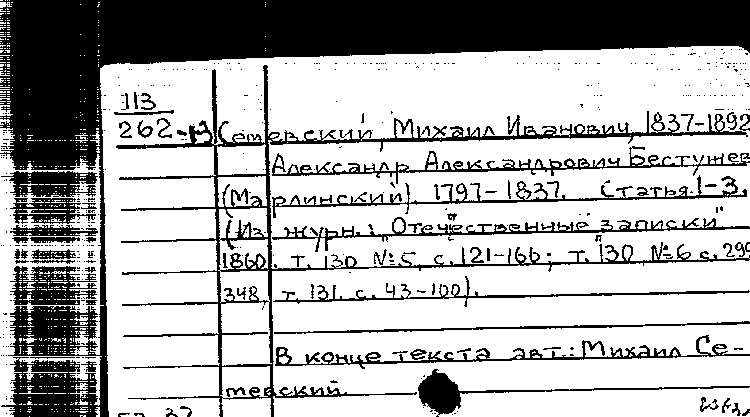 113
262-13 Семевский, Михаил Иванович, 1837-1892
Александр Александрович Бестужев
(Марлинский). 1797-1837. Статья 1-3.
(Из журн.: "Отечественные записки"
1860. т. 130 №5, с. 121-166; т. 130 №6 с. 299
348, т. 131. с. 43-100).
В конце текста авт.: Михаил Се-
мевский.